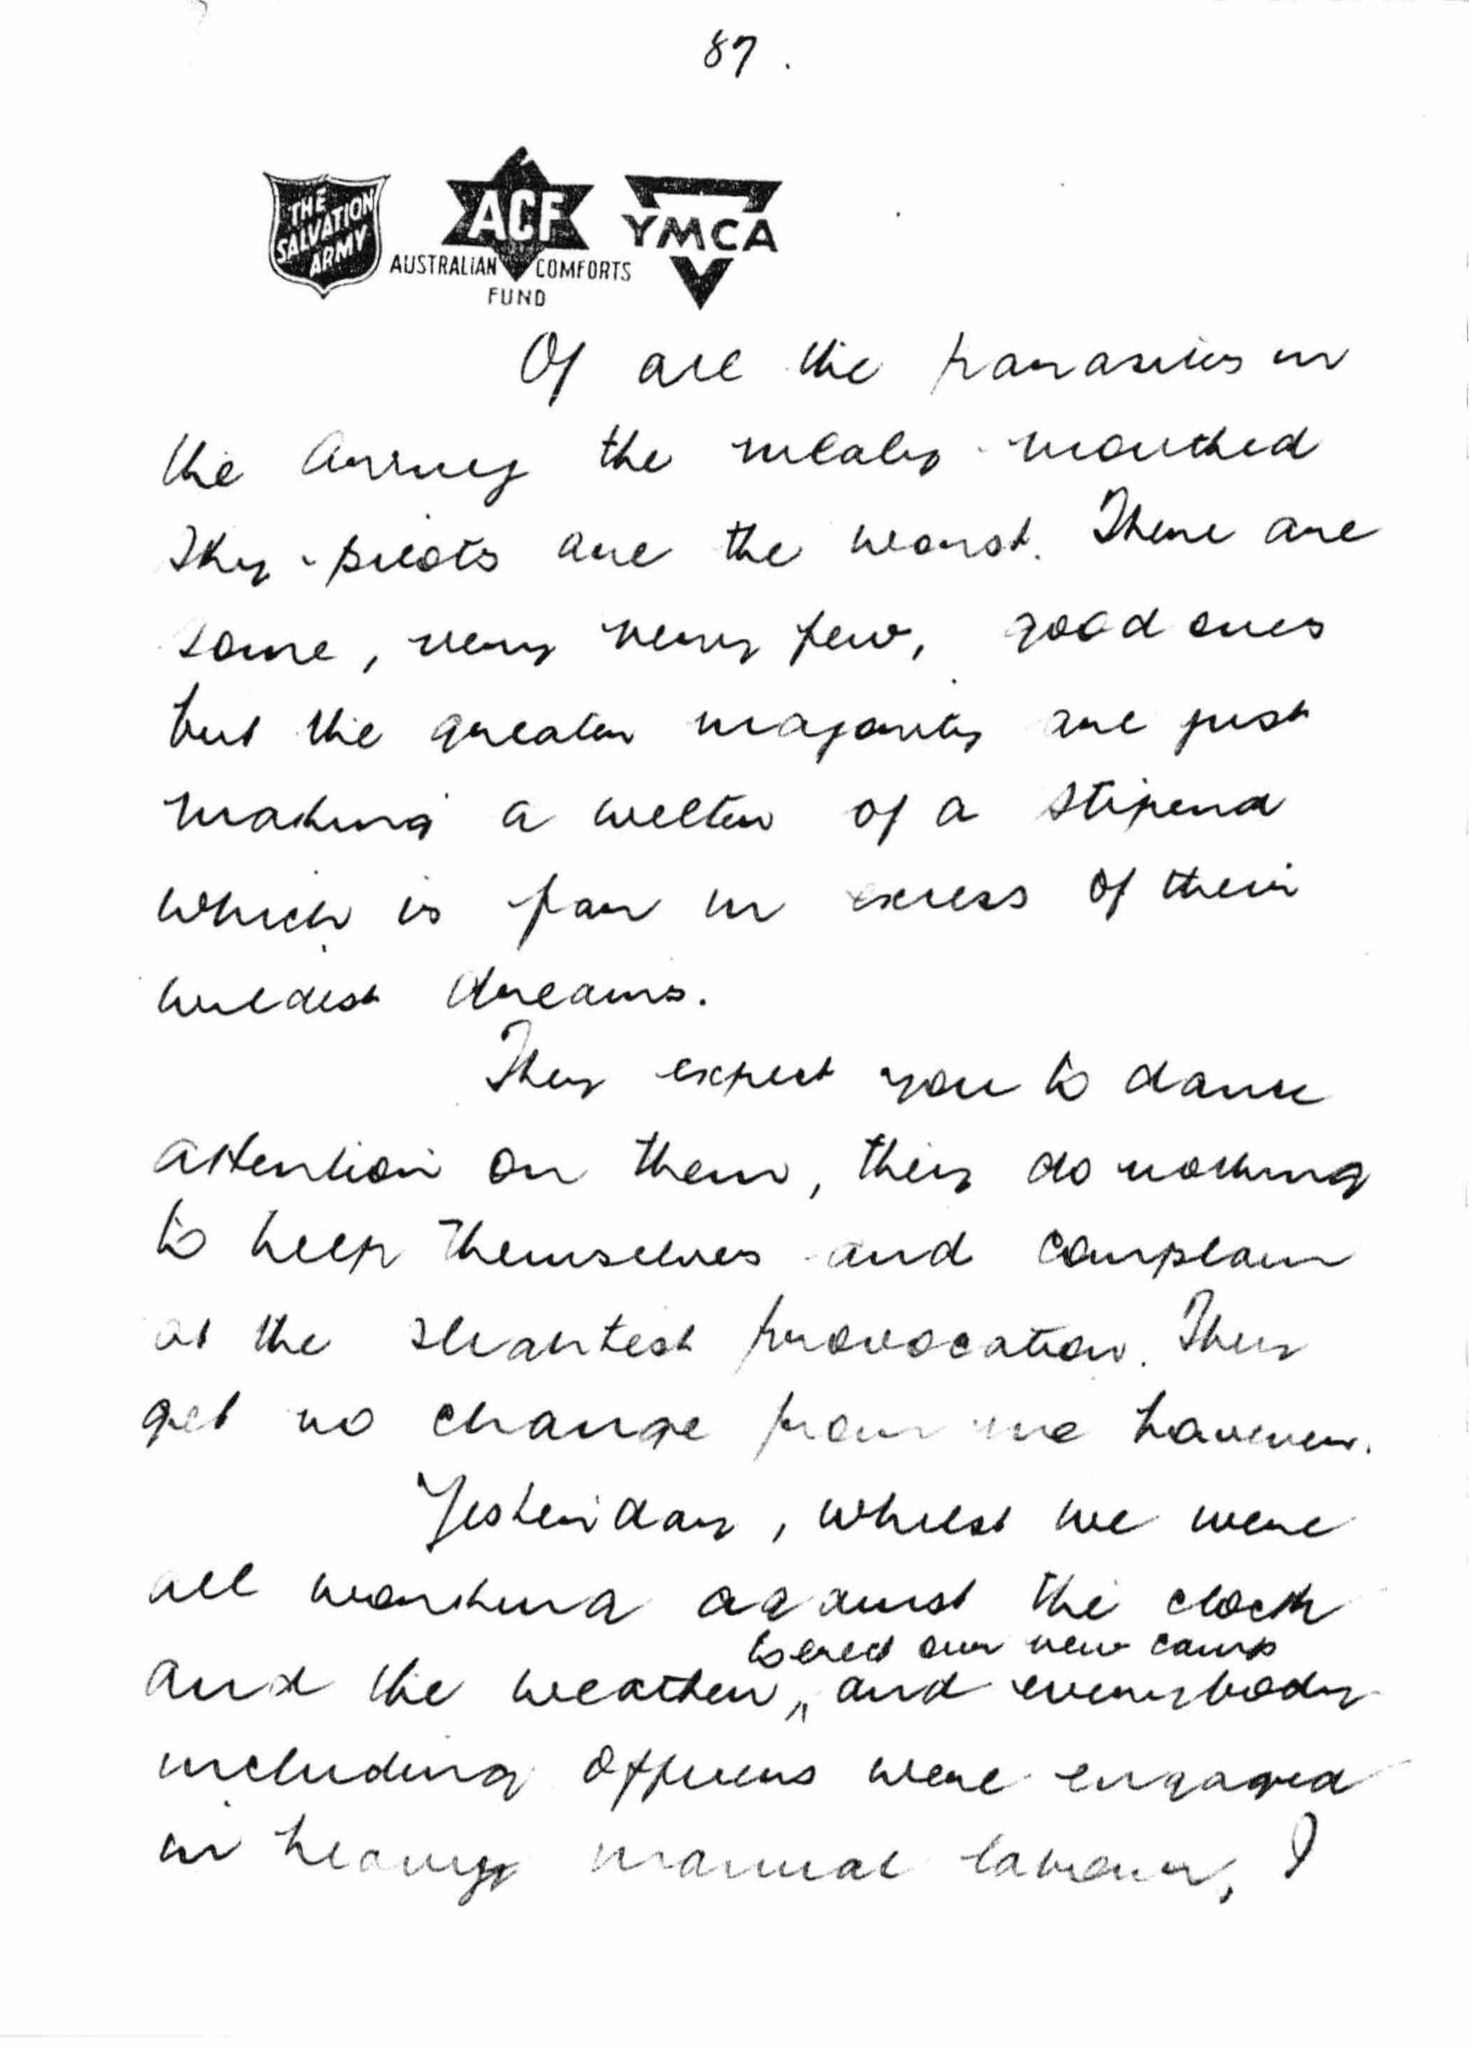 87.
THE SALVATION ARMY
ACF
AUSTRALIAN COMFORTS FUND
YMCA
Of all the parasites in
the Army the mealy-mouthed
sky-pilots are the worst. There are
some, very very few, good ones
but the greater majority are just
making a welter of a stipend
which is far in excess of their
wildest dreams.
They expect you to dance
attention on them, they do nothing
to help themselves and complain
at the slightest provocation. They
get no change from me however.
Yesterday, whilst we were
all working against the clock
to erect our new camp
and the weather, and everybody
including officers were engaged
in heavy manual labour, I